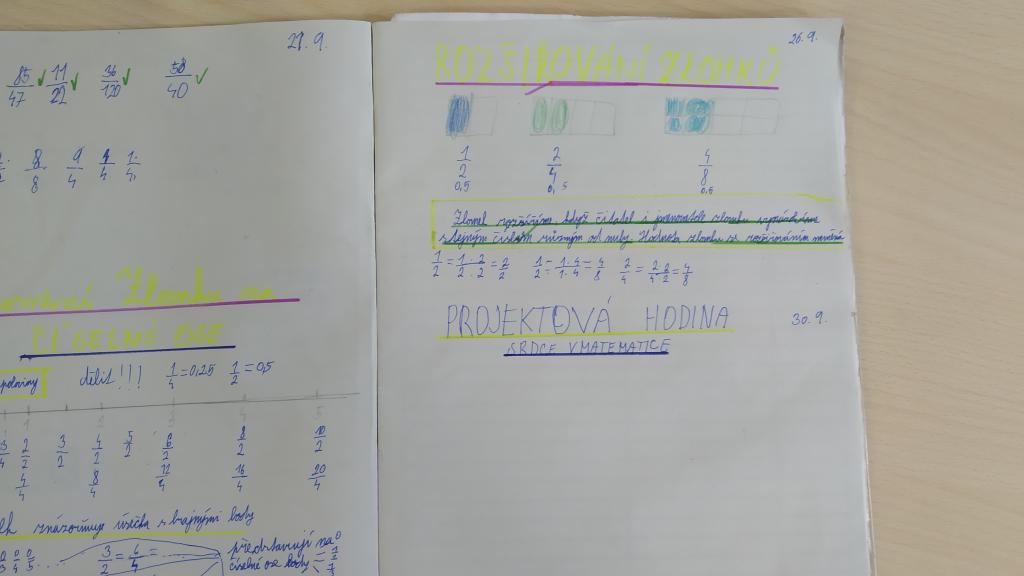 29.9.
85/47 11/22 36/120 50/40
8/8 9/4 4/4 1/4
Zlomků na
ČÍSELNÉ OSE
poloviny dělit!!! 1/4=0,25 1/2=0,5
1 2 3 4 5
3/4 2/2 3/2 4/2 5/2 6/2 8/2 10/2
4/4 8/4 12/4 16/4 20/4
znázorňuje úsečka s krajnými body
0/3 0/4 0/5 ... 3/2 = 4/4 = ... představují na
číselné ose body
26.9.
ROZŠIŘOVÁNÍ ZLOMKŮ
1/2 2/4 4/8
0,5 0,5 0,5
Zlomek rozšířím, když čitatel i jmenovatel zlomku vynásobíme
stejným číslem různým od nuly. Hodnota zlomku se rozšiřováním nemění
1/2=1·2/2·2=2/2 1/2=1·4/1·4=4/8 2/4=2·2/4·2=4/8
PROJEKTOVÁ HODINA 30.9.
SRDCE V MATEMATICE